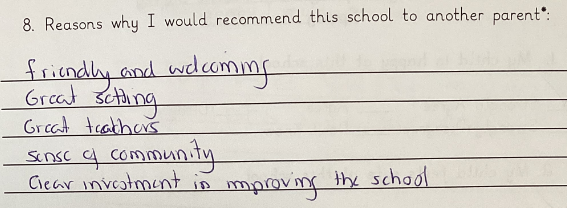 8. Reasons why I would recommend this school to another parent*:
friendly and welcoming
Great setting
Great teachers
sense of community
Clear investment in improving the school